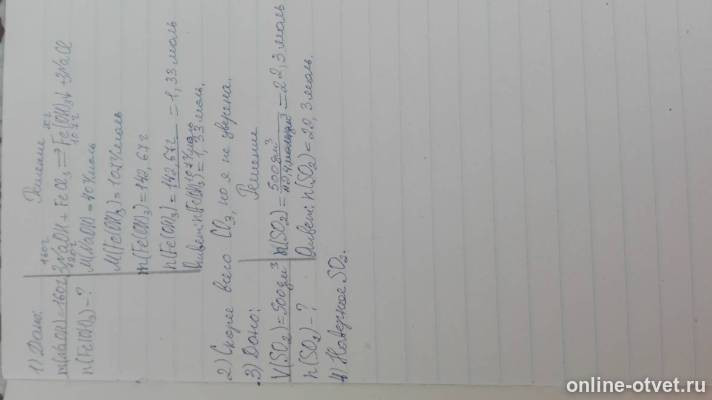 1) Дано:
m(NaOH)=160г
n(Fe(OH)3)-?
Решение
160г xг
3NaOH + FeCl3 → Fe(OH)3↓ + 3NaCl
120г 107г
M(NaOH) = 40 г/моль
M(Fe(OH)3) = 107 г/моль
m(Fe(OH)3) = 142,67г
n(Fe(OH)3) = 142,67г / 107 г/моль = 1,33 моль
Ответ: n(Fe(OH)3) = 1,33 моль.
2) Скорее всего Cl3, но я не уверена.
3) Дано:
V(SO2)=500дм³
n(SO2)-?
Решение
n(SO2) = 500дм³ / = 22,3 моль
Ответ: n(SO2) = 22,3 моль.
4) Наверное SO2.
online-otvet.ru